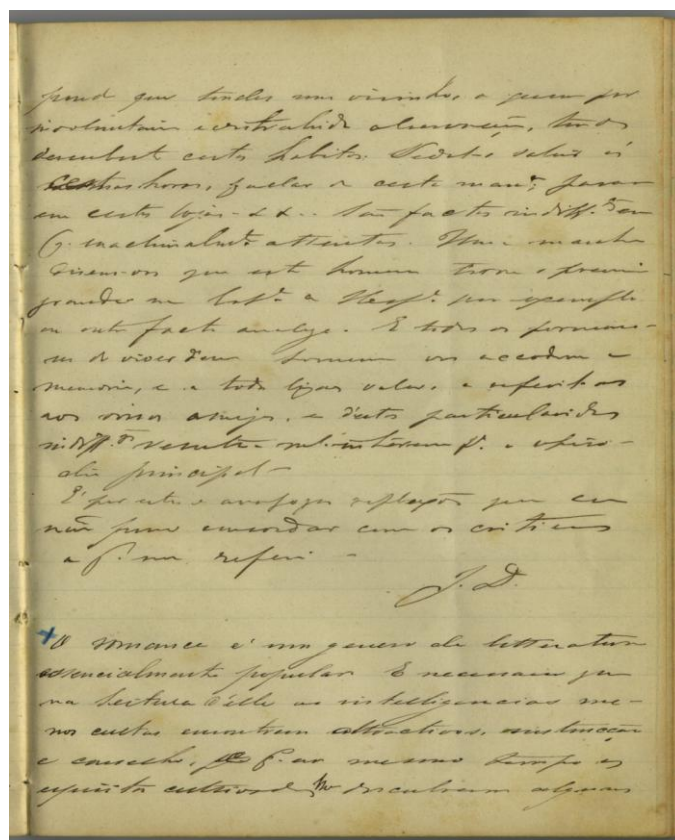 pond que tendes um visinho, a quem por
involuntaria e contrahida observação, tendes
descuberto certos habitos. Vedel-o sahir ás
certas horas, fallar de certa man.ª, parar
em certas lojas - && .. São factos indiff.tes em
q. machinalm.te attentas. Uma manhã
dizem-vos que este homem tirou o premio
grande na lot.ª de Hesp.ª por exemplo
ou outro facto analogo. E todos os pormeno-
res do viver d'esse homem vos accodem á
memoria, e a todos ligaes valor, e referil-os
aos vossos amigos, e d'estas particularidades
indiff.tes resulta interesse p.ª o episo-
dio principal -
É por estas e analogas reflexões que eu
não posso concordar com os criticos
a q. me referi -
J. D.
O romance é um genero de litteratura
essencialmente popular. É necessario que
na leitura d'elle as intelligencias me-
nos cultas encontrem attractivos, instrucção
e conselho, q. ao mesmo tempo os
espiritos cultivados lhe descubram alguns